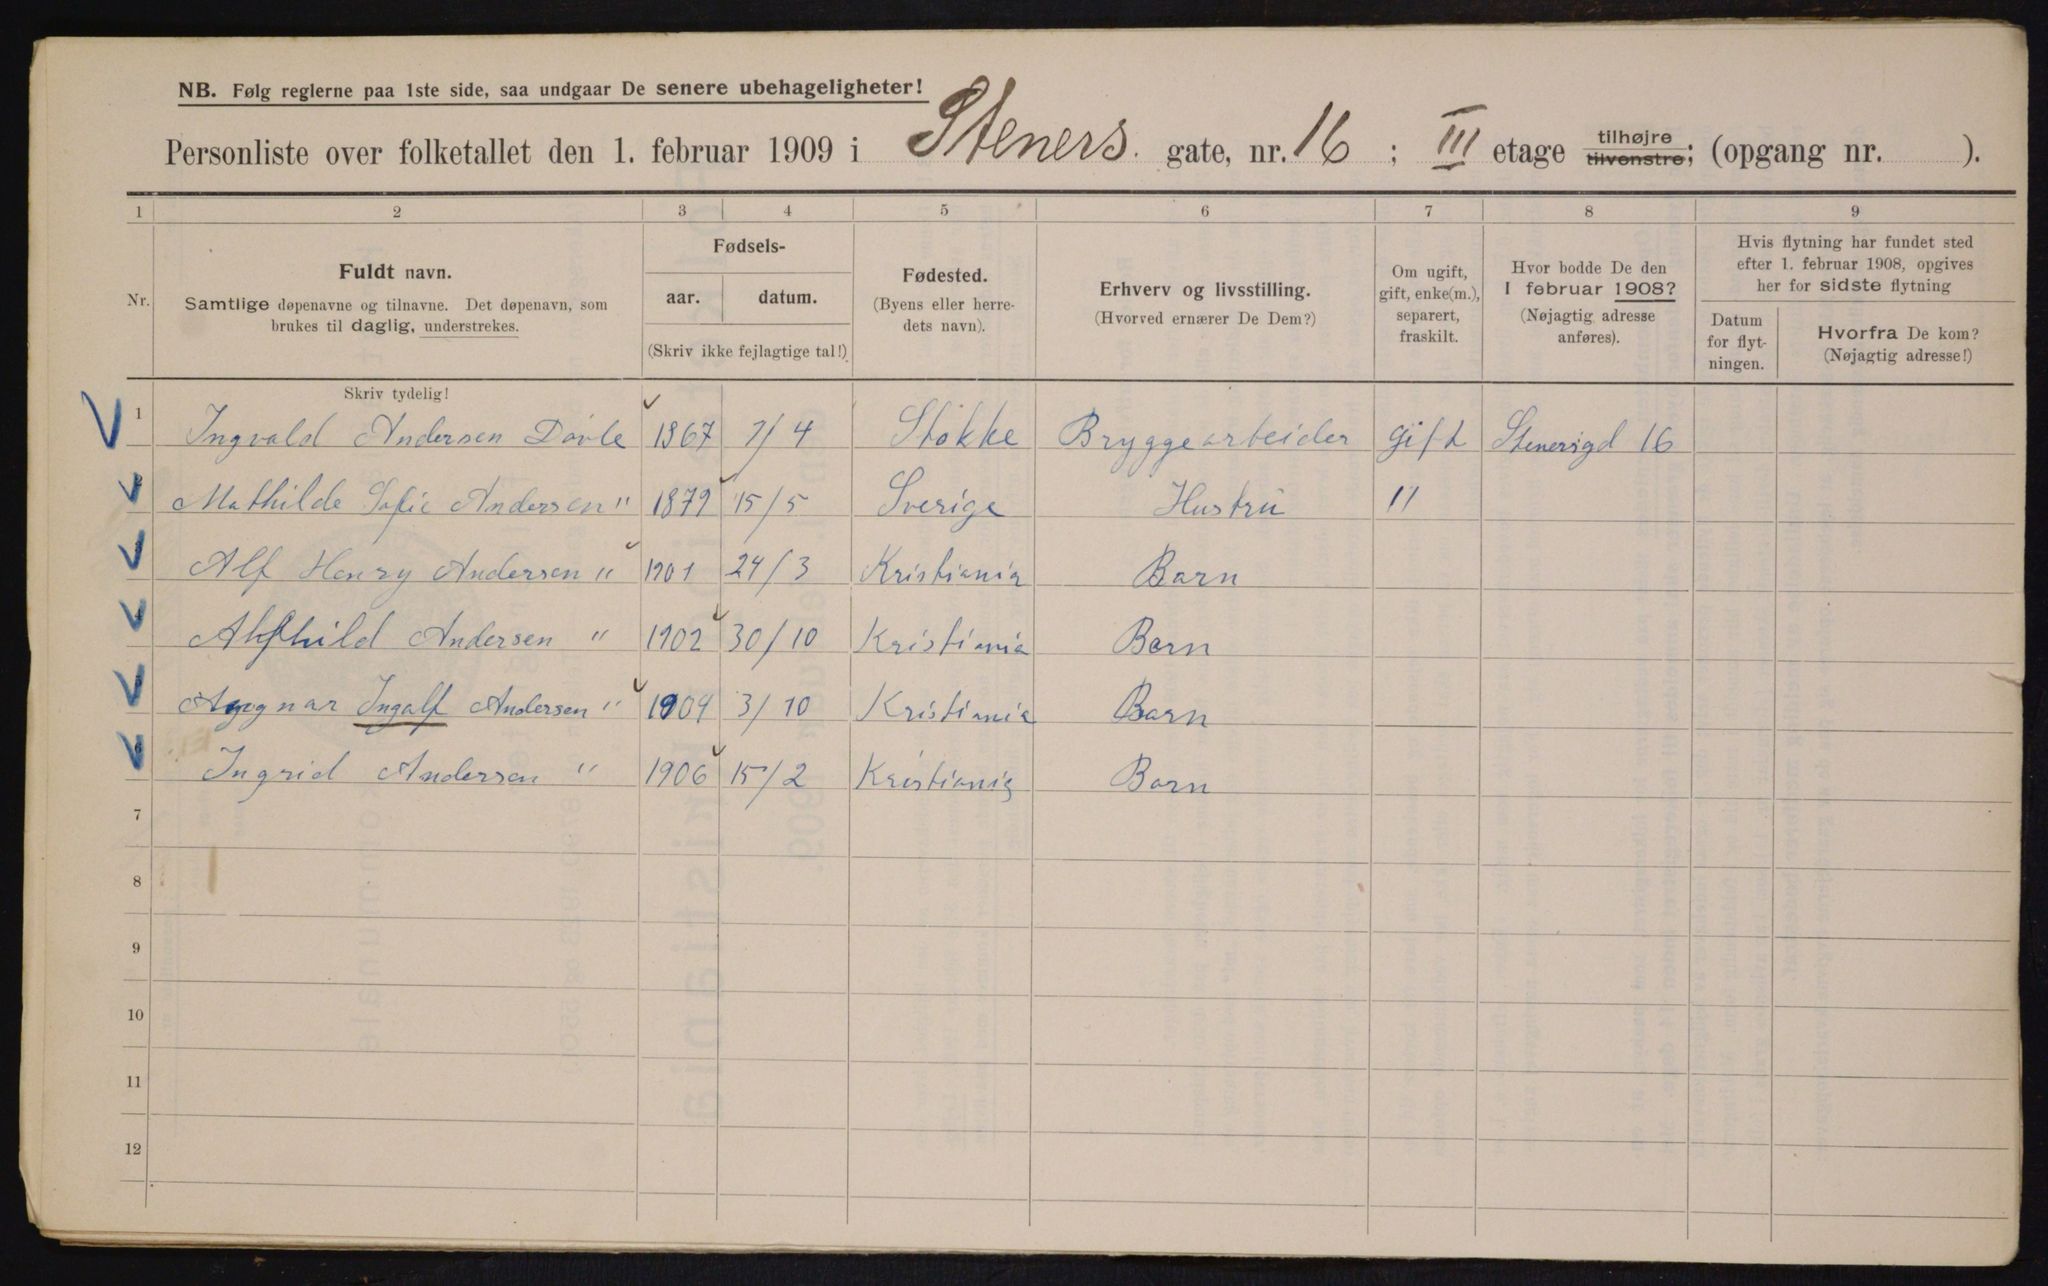 NB. Følg reglerne paa 1ste side, saa undgaar De senere ubehageligheter!
Personliste over folketallet den 1. februar 1909 i Steners gate, nr. 16 ; III etage tilhøjre tilvenstre; (opgang nr. ).
1 2 3 4 5 6 7 8 9
Nr.
Fuldt navn.
Samtlige døpenavne og tilnavne. Det døpenavn, som
brukes til daglig, understrekes.
Skriv tydelig!
Fødsels-
aar. datum.
(Skriv ikke fejlagtige tal!)
Fødested.
(Byens eller herre-
dets navn).
Erhverv og livsstilling.
(Hvorved ernærer De Dem?)
Om ugift,
gift, enke(m.),
separert,
fraskilt.
Hvor bodde De den
1 februar 1908?
(Nøjagtig adresse
anføres).
Hvis flytning har fundet sted
efter 1. februar 1908, opgives
her for sidste flytning
Datum
for flyt-
ningen.
Hvorfra De kom?
(Nøjagtig adresse!)
1 Ingvald Andersen Døvle 1867 7/4 Stokke Bryggearbeider gift Stenersgd 16
2 Mathilde Sofie Andersen " 1879 15/5 Sverige Hustru "
3 Alf Henry Andersen " 1901 24/3 Kristiania Barn
4 Alfhild Andersen " 1902 30/10 Kristiania Barn
5 Ingolf Andersen " 1904 3/10 Kristiania Barn
6 Ingrid Andersen " 1906 15/2 Kristiania Barn
7
8
9
10
11
12